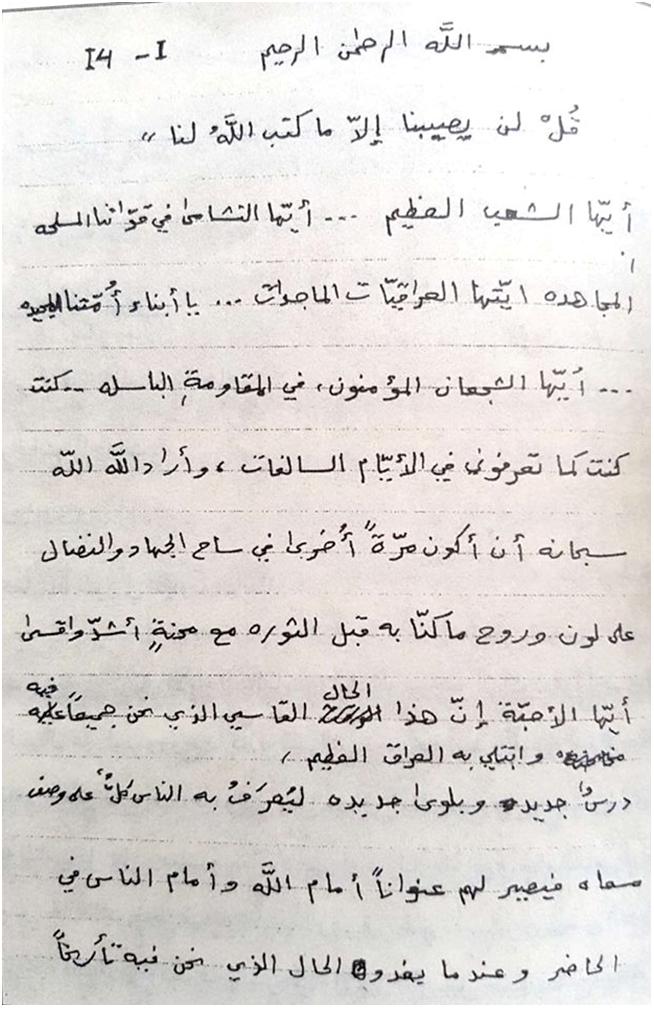 بسم اللَّه الرحمن الرحيم I - I4
قُلْ لن يصيبنا إلاّ ما كتب اللَّهُ لنا „
أيّها الشعب العظيم ... أيّها النشامىٰ في قوّاتنا المسلحه
المجاهده ايّتها العراقيّات الماجدات ... يا أبناء أُمّتنا المجيده
... أيّها الشجعان المؤمنون، في المقاومةِ الباسله .. كنت
كنت كما تعرفوني في الأيّام السالفات، وأراد اللَّه اللّه
سبحانه أن أكون مرّةً أُخرىٰ في ساح الجهاد والنضال
على لون وروح ما كنّا به قبل الثوره مع محنةٍ أشدّ واقسىٰ
الحال فيه
أيّها الأحبّة إنّ هذا القاسي الذي نحن جميعاً
وابتلي به العراق العظيم،
درسٌ جديد وبلوىٰ جديده ليُعرَفُ به الناس كلٌّ على وصف
مسماه فيصير لهم عنواناً أمام اللَّه وأمام الناس في
الحاضر وعندما يغدو الحال الذي نحن فيه تأريخاً